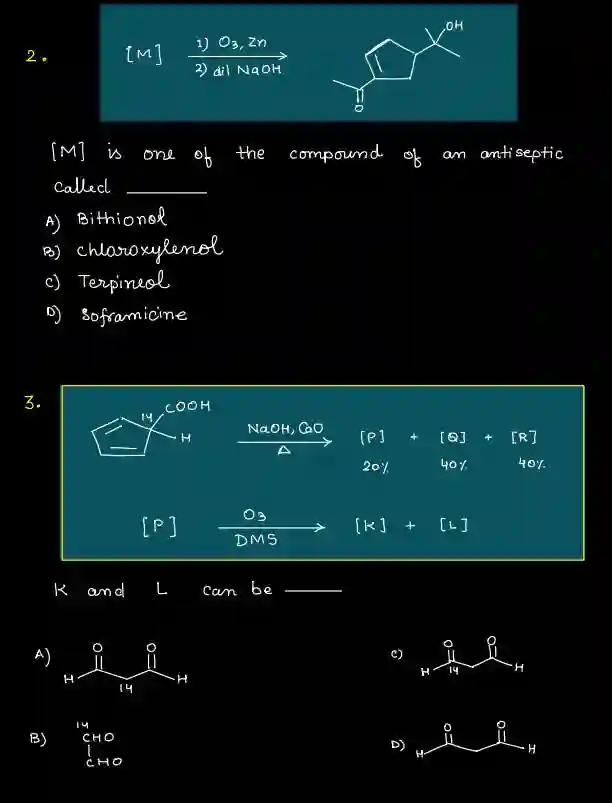 2.
[M] 1) O3, Zn
2) dil NaOH
OH
O
[M] is one of the compound of an antiseptic
called ______
A) Bithionol
B) chloroxylenol
C) Terpineol
D) Soframicine
3.
14 COOH
H
NaOH, CaO
Δ
[P] + [Q] + [R]
20% 40% 40%
[P] O3 [K] + [L]
DMS
K and L can be ______
A) O O
H H
14
C) O O
H 14 H
B) 14
CHO
CHO
D) O O
H H